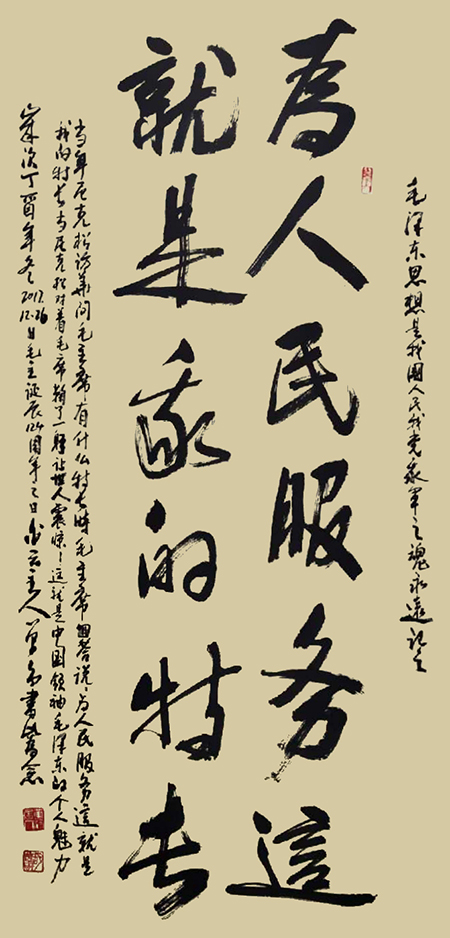 毛泽东思想是我國人民我党我军之魂永远记之
為人民服务這
就是我的特长
当年尼克松访华问毛主席有什么特长时毛主席回答说为人民服务這就是
我的特长当尼克松对着毛席鞠了一躬让世人震惊！这就是中国领袖毛泽东的个人魅力
岁次丁酉年冬2017.12.26日毛主诞辰124周年之日 主人 书 念